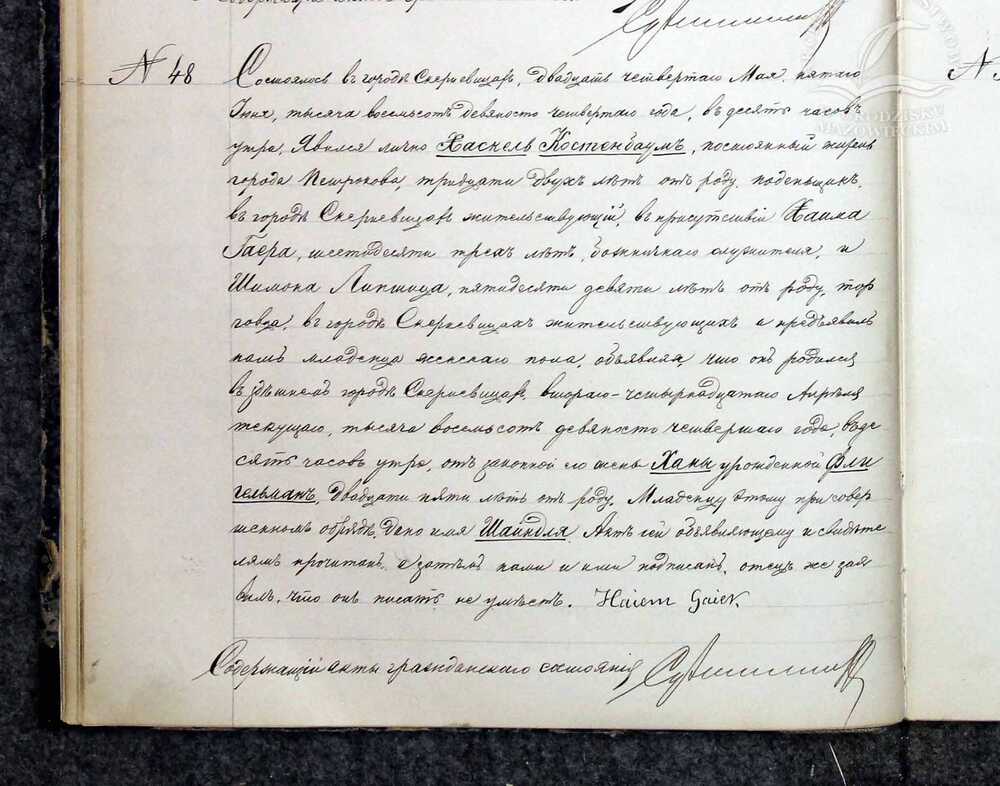 № 48
Состоялось въ городѣ Скерневицахъ, двадцать четвертаго Мая, пятаго
Іюня, тысяча восемьсотъ девяносто четвертаго года, въ десять часовъ
утра, Явился лично Хаскель Костенбаумъ, постоянный житель
города Петрокова, тридцати двухъ лѣтъ отъ роду, поденьщикъ,
въ городѣ Скерневицахъ жительствующій, въ присутствіи Хаима
Гаера, шестодесяти трехъ лѣтъ, божничнаго служителя, и
Шимона Липшица, пятидесяти девяти лѣтъ отъ роду, тор
говца, въ городѣ Скерневицахъ жительствующихъ и предъявилъ
намъ младенца женскаго пола, объявляя, что онъ родился
въ здѣшнемъ городѣ Скерневицахъ, втораго-четырнадцатаго Апрѣля
текущаго, тысяча восемьсотъ девяносто четвертаго года, въ де-
сять часовъ утра, отъ законной его жены Ханы урожденной Фли
гельманъ, двадцати пяти лѣтъ отъ роду. Младенцу этому при совер
шенномъ обрядѣ, дано имя Шайндля. Актъ сей объявляющему и свидѣте
лямъ прочитанъ, а затѣмъ нами и ими подписанъ, отецъ же зая
вилъ, что онъ писать не умѣетъ. Haiem Gaier
Содержащій акты гражданскаго состоянія
GRODZISKU
MAZOWIECKIM